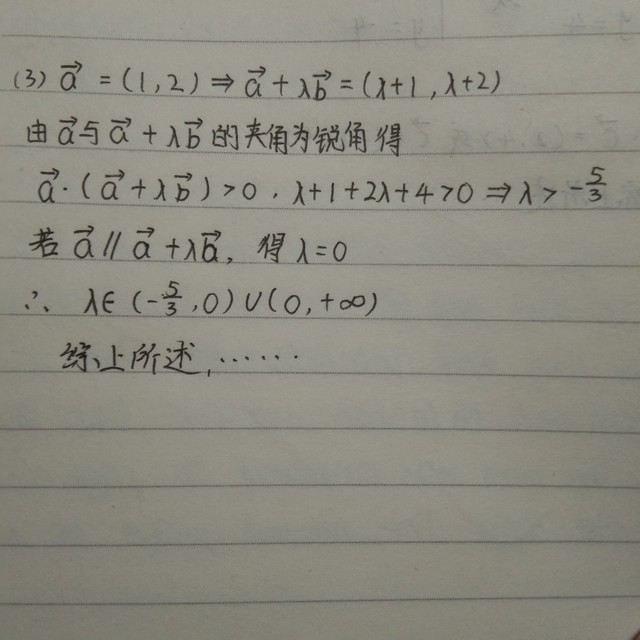 (3) a⃗ = (1,2) ⇒ a⃗ + λb⃗ = (λ+1, λ+2)
由 a⃗ 与 a⃗ + λb⃗ 的夹角为锐角得
a⃗·(a⃗ + λb⃗) > 0, λ+1+2λ+4>0 ⇒ λ > -5/3
若 a⃗ // a⃗ + λa⃗, 得 λ=0
∴ λ∈(-5/3, 0)∪(0, +∞)
综上所述, ······